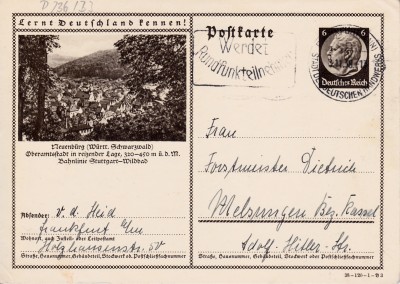 D 126 / B3
Lernt Deutschland kennen!
Postkarte
Werdet
Rundfunkteilnehmer
6 6
Deutsches Reich
STADT DES DEUTSCHEN HANDWERKS
Neuenbürg (Württ. Schwarzwald)
Oberamtsstadt in reizender Lage, 320–450 m ü. d. M.
Bahnlinie Stuttgart–Wildbad
Absender: v. d. Heid
Frankfurt a/m
Wohnort, auch Zustell- oder Leitpostamt
Holzhausenstr. 50
Straße, Hausnummer, Gebäudeteil, Stockwerk od. Postschließfachnummer
Frau
Forstmeister Dietrich
Melsungen Bez. Kassel
Adolf-Hitler-Str.
Straße, Hausnummer, Gebäudeteil, Stockwerk oder Postschließfachnummer